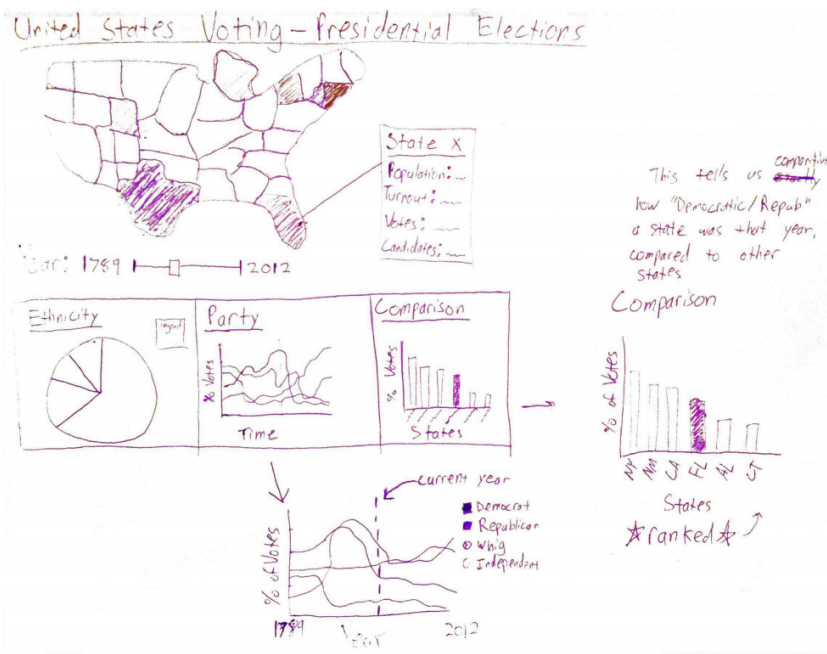 United States Voting - Presidential Elections
State X
Population:
Turnout:
Votes:
Candidates:
This tells us
how "Democratic/Repub"
a state was that year,
compared to other
states
1789
2012
Ethnicity
Party
% Votes
Time
Comparison
% Votes
States
Comparison
% of Votes
NY
NM
CA
FL
AL
CT
States
☆ranked☆
current year
Democrat
Republican
Whig
Independent
% of Votes
1789
Year
2012